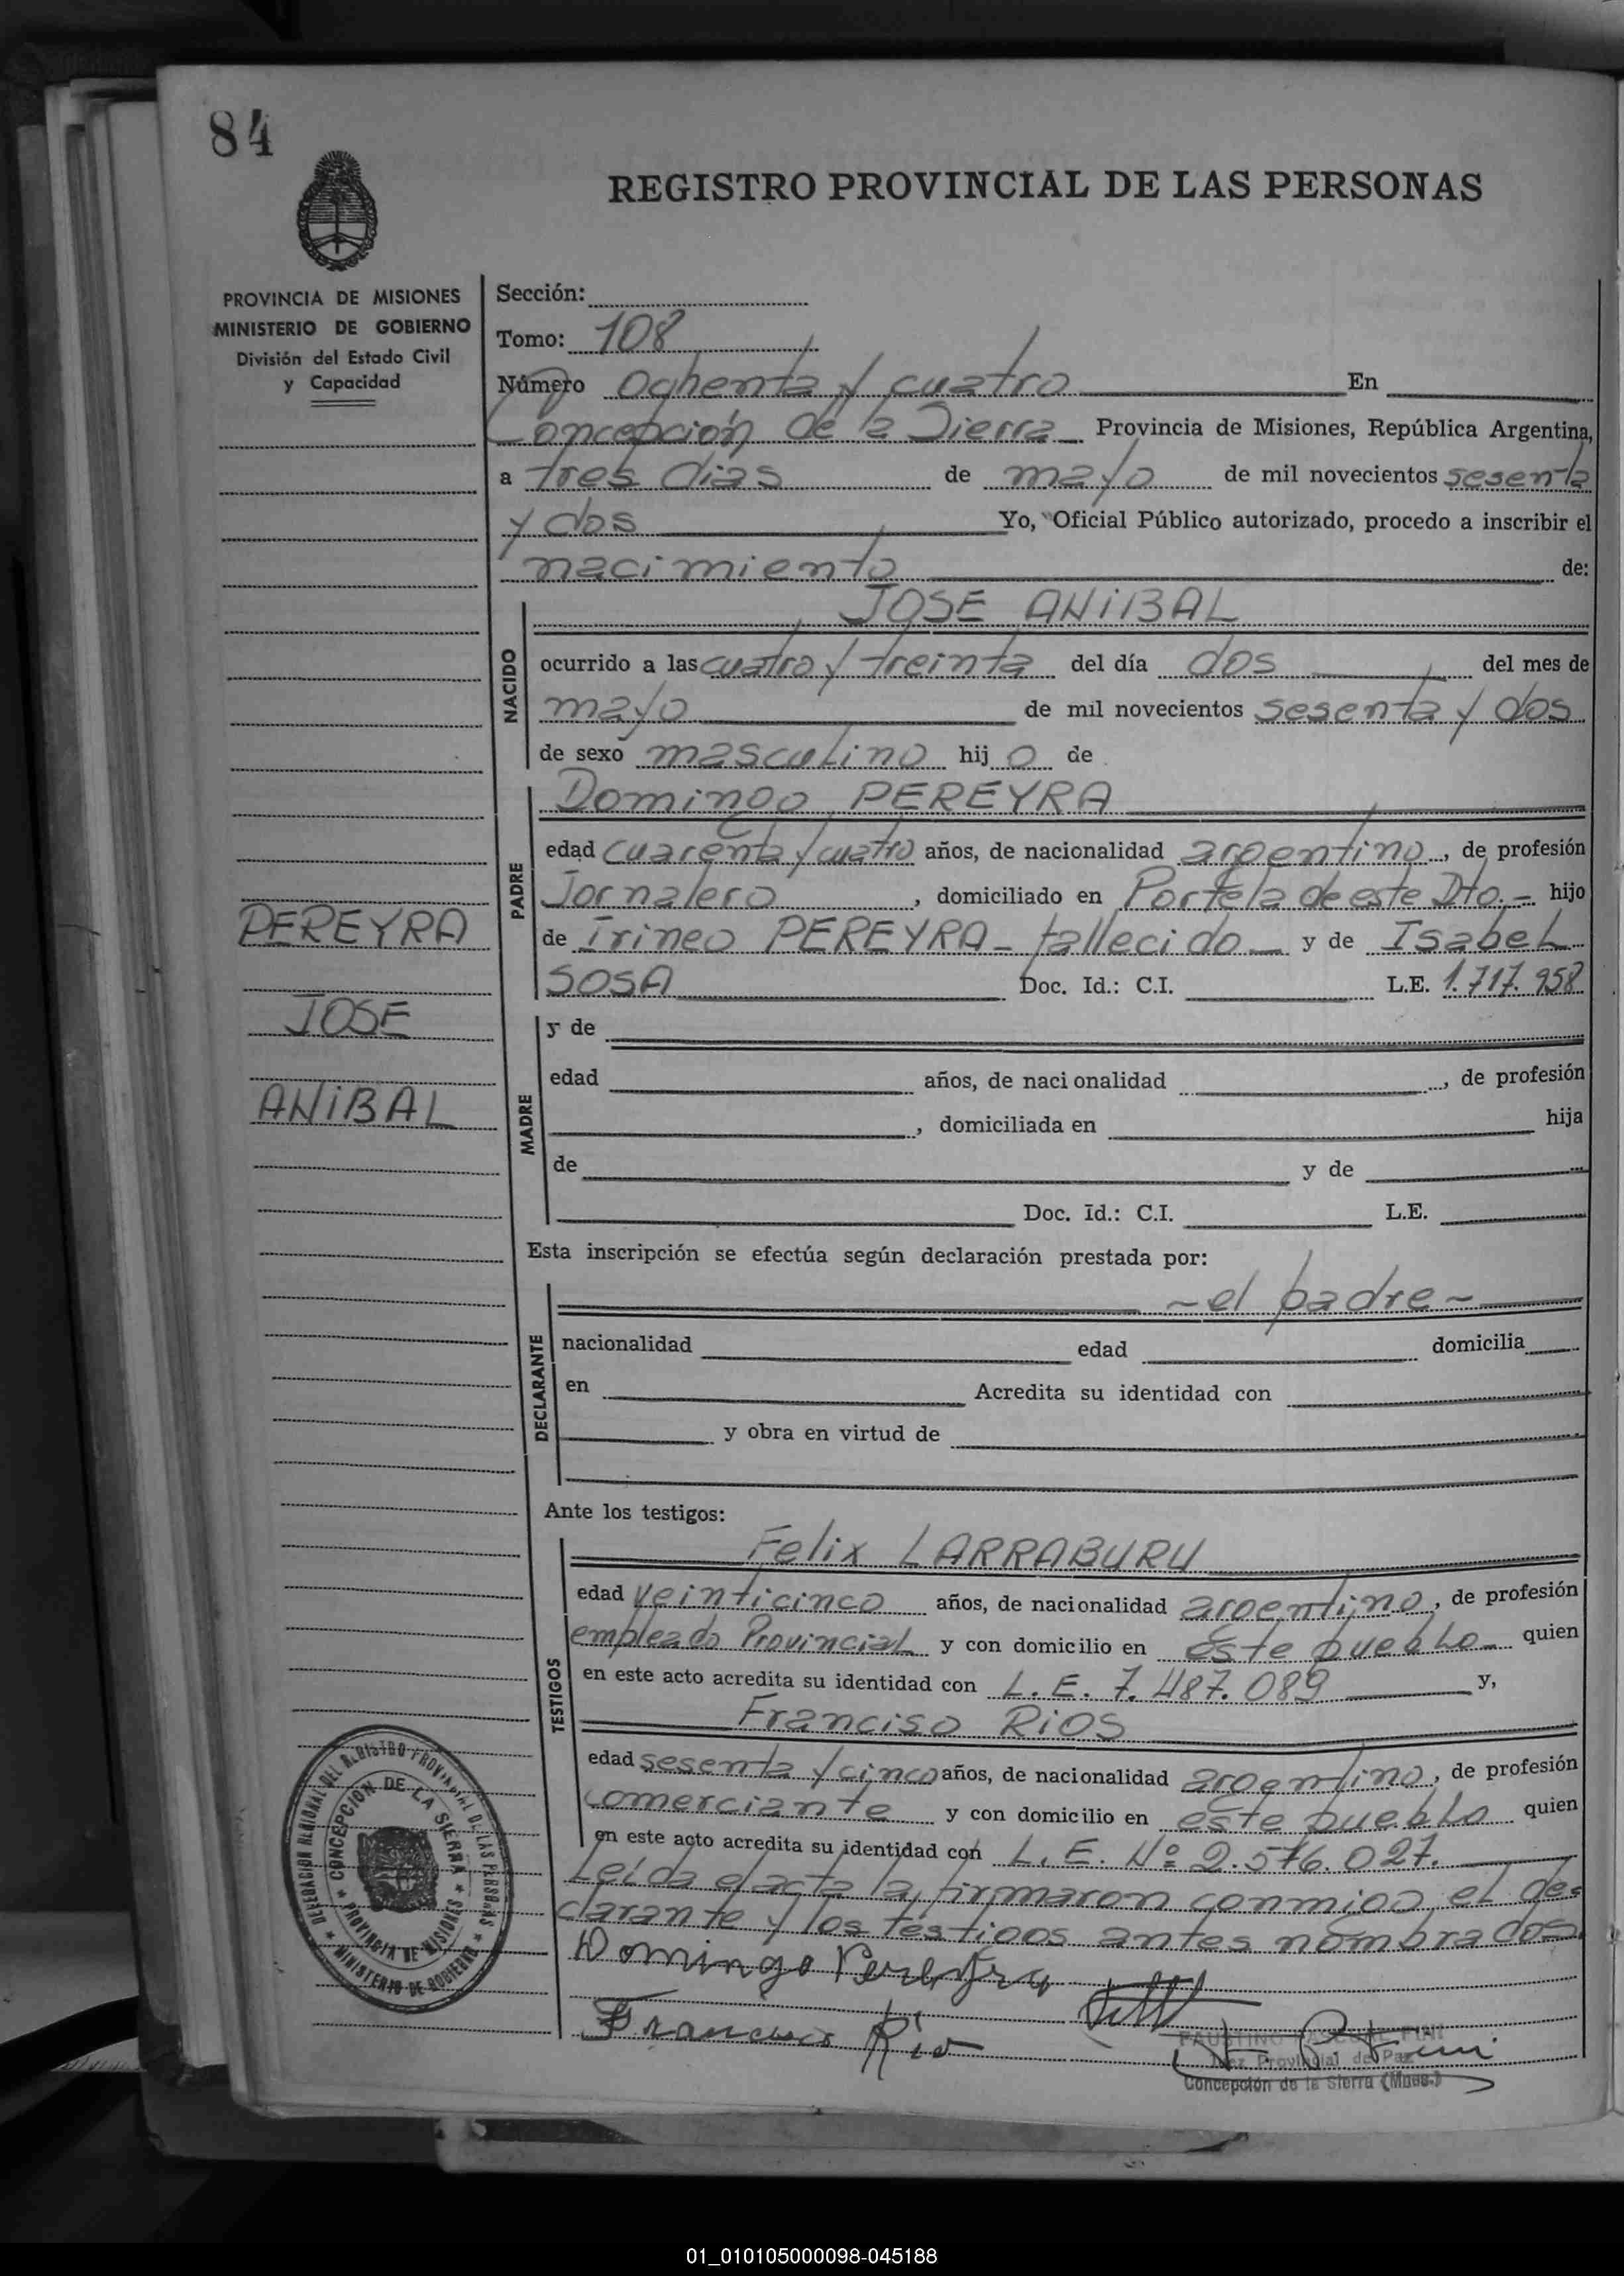 84
REGISTRO PROVINCIAL DE LAS PERSONAS
PROVINCIA DE MISIONES
MINISTERIO DE GOBIERNO
División del Estado Civil
y Capacidad
Sección:
Tomo: 108
Número Ochenta y cuatro En
Concepción de la Sierra Provincia de Misiones, República Argentina,
a tres dias de mayo de mil novecientos sesenta
y dos Yo, Oficial Público autorizado, procedo a inscribir el
nacimiento de:
NACIDO
JOSE ANiBAL
ocurrido a las cuatro y treinta del día dos del mes de
mayo de mil novecientos sesenta y dos
de sexo masculino hij o de
PADRE
Domingo PEREYRA
edad cuarenta y cuatro años, de nacionalidad argentino, de profesión
Jornalero, domiciliado en Portela de este Dto.- hijo
de Irineo PEREYRA - fallecido y de Isabel
SOSA Doc. Id.: C.I. L.E. 1.717.958
PEREYRA
JOSE
ANiBAL
MADRE
y de
edad años, de nacionalidad, de profesión
, domiciliada en hija
de y de
Doc. Id.: C.I. L.E.
Esta inscripción se efectúa según declaración prestada por:
DECLARANTE
~ el padre ~
nacionalidad edad domicilia
en Acredita su identidad con
y obra en virtud de
Ante los testigos:
TESTIGOS
Felix LARRABURU
edad veinticinco años, de nacionalidad argentino, de profesión
empleado Provincial y con domicilio en este pueblo quien
en este acto acredita su identidad con L.E. 7.487.089 y,
Franciso RiOS
edad sesenta y cinco años, de nacionalidad argentino, de profesión
comerciante y con domicilio en este pueblo quien
en este acto acredita su identidad con L.E. Nº 2.576.027.
Leida el acta la firmaron conmigo el de=
clarante y los testigos antes nombrados.
Domingo Pereyra
Francisco Rio
FAUSTINO PASCUAL FINI
Juez Provincial de Paz
Concepción de la Sierra (Mnes.)
DELEGACION REGIONAL DEL REGISTRO PROVINCIAL DE LAS PERSONAS
CONCEPCION DE LA SIERRA
PROVINCIA DE MISIONES
MINISTERIO DE GOBIERNO
01_010105000098-045188